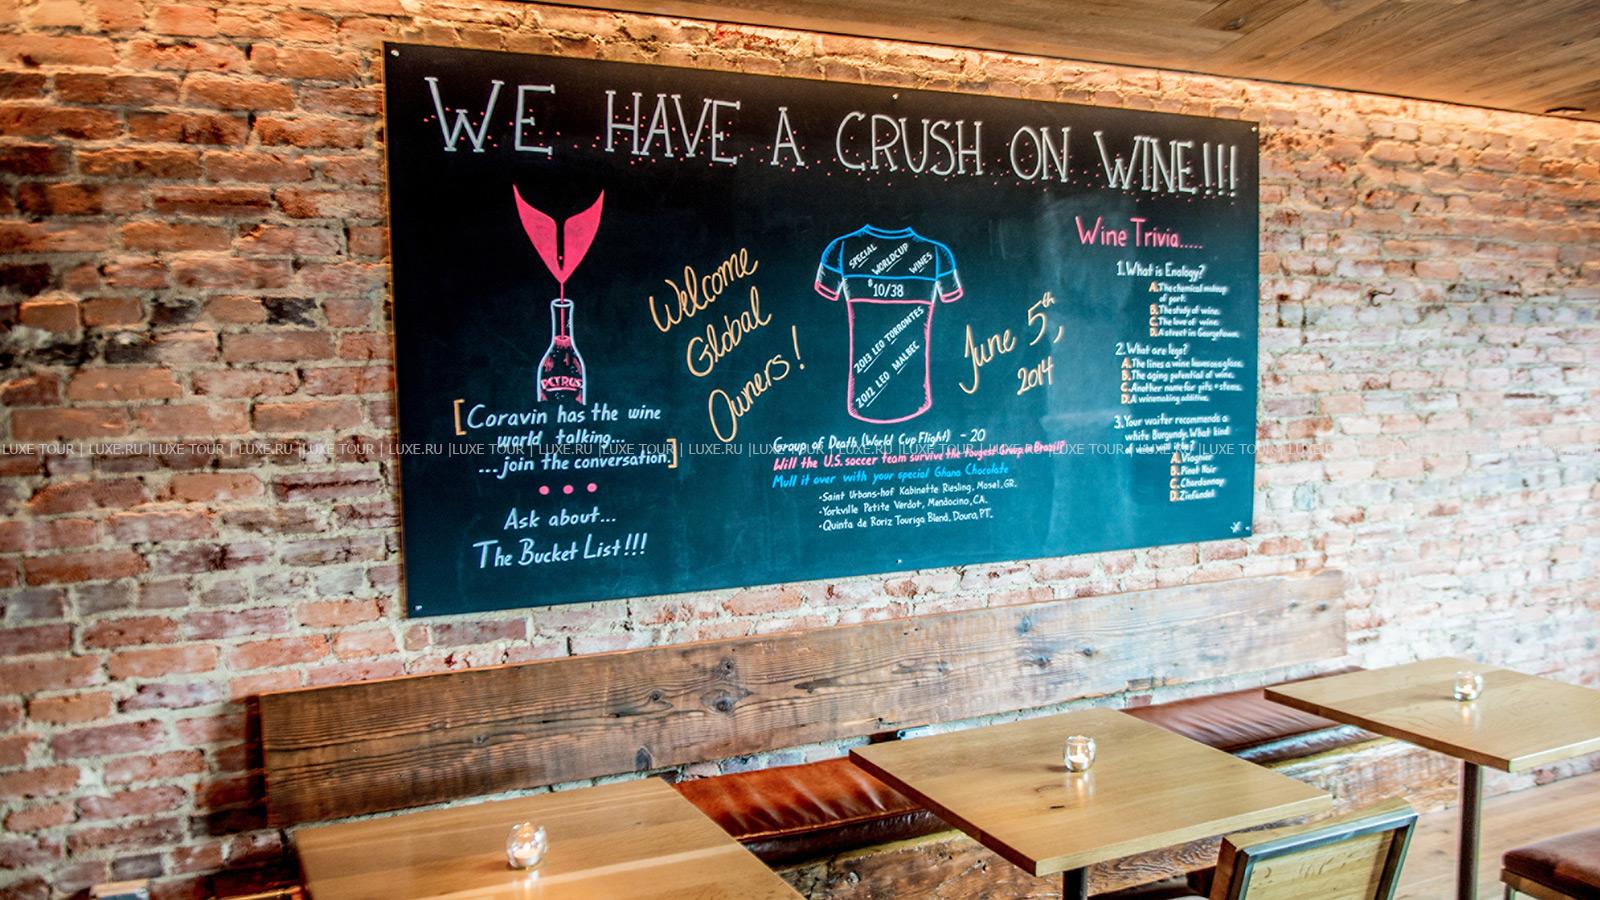 WE HAVE A CRUSH ON WINE!!!
PETRUS
[Coravin has the wine
world talking...
...join the conversation.]
Ask about...
The Bucket List!!!
Welcome
Global
Owners!
SPECIAL
WORLDCUP
WINES
$10/38
2013 LEO TORRONTES
2012 LEO MALBEC
June 5th,
2014
Group of Death (World Cup Flight) - 20
Will the U.S. soccer team survive the Toughest Group in Brazil?
Mull it over with your special Ghana Chocolate
•Saint Urbans-hof Kabinette Riesling, Mosel, GR.
•Yorkville Petite Verdot, Mendocino, CA.
•Quinta de Roriz Touriga Blend, Douro, PT.
Wine Trivia.....
1. What is Enology?
A. The chemical makeup
of port.
B. The study of wine.
C. The love of wine.
D. A street in Georgetown.
2. What are legs?
A. The lines a wine leaves on a glass.
B. The aging potential of wine.
C. Another name for pits + stems.
D. A winemaking additive.
3. Your waiter recommends a
white Burgundy. What kind
of will it be?
A. Viognier
B. Pinot Noir
C. Chardonnay
D. Zinfandel
LUXE TOUR | LUXE.RU |LUXE TOUR | LUXE.RU |LUXE TOUR | LUXE.RU |LUXE TOUR | LUXE.RU |LUXE TOUR | LUXE.RU |LUXE TOUR | LUXE.RU |LUXE TOUR | LUXE.RU |LUXE TOUR | LUXE.RU |LUXE TOUR | LUXE.RU |LUXE TOUR | LUXE.RU |LUXE TOUR